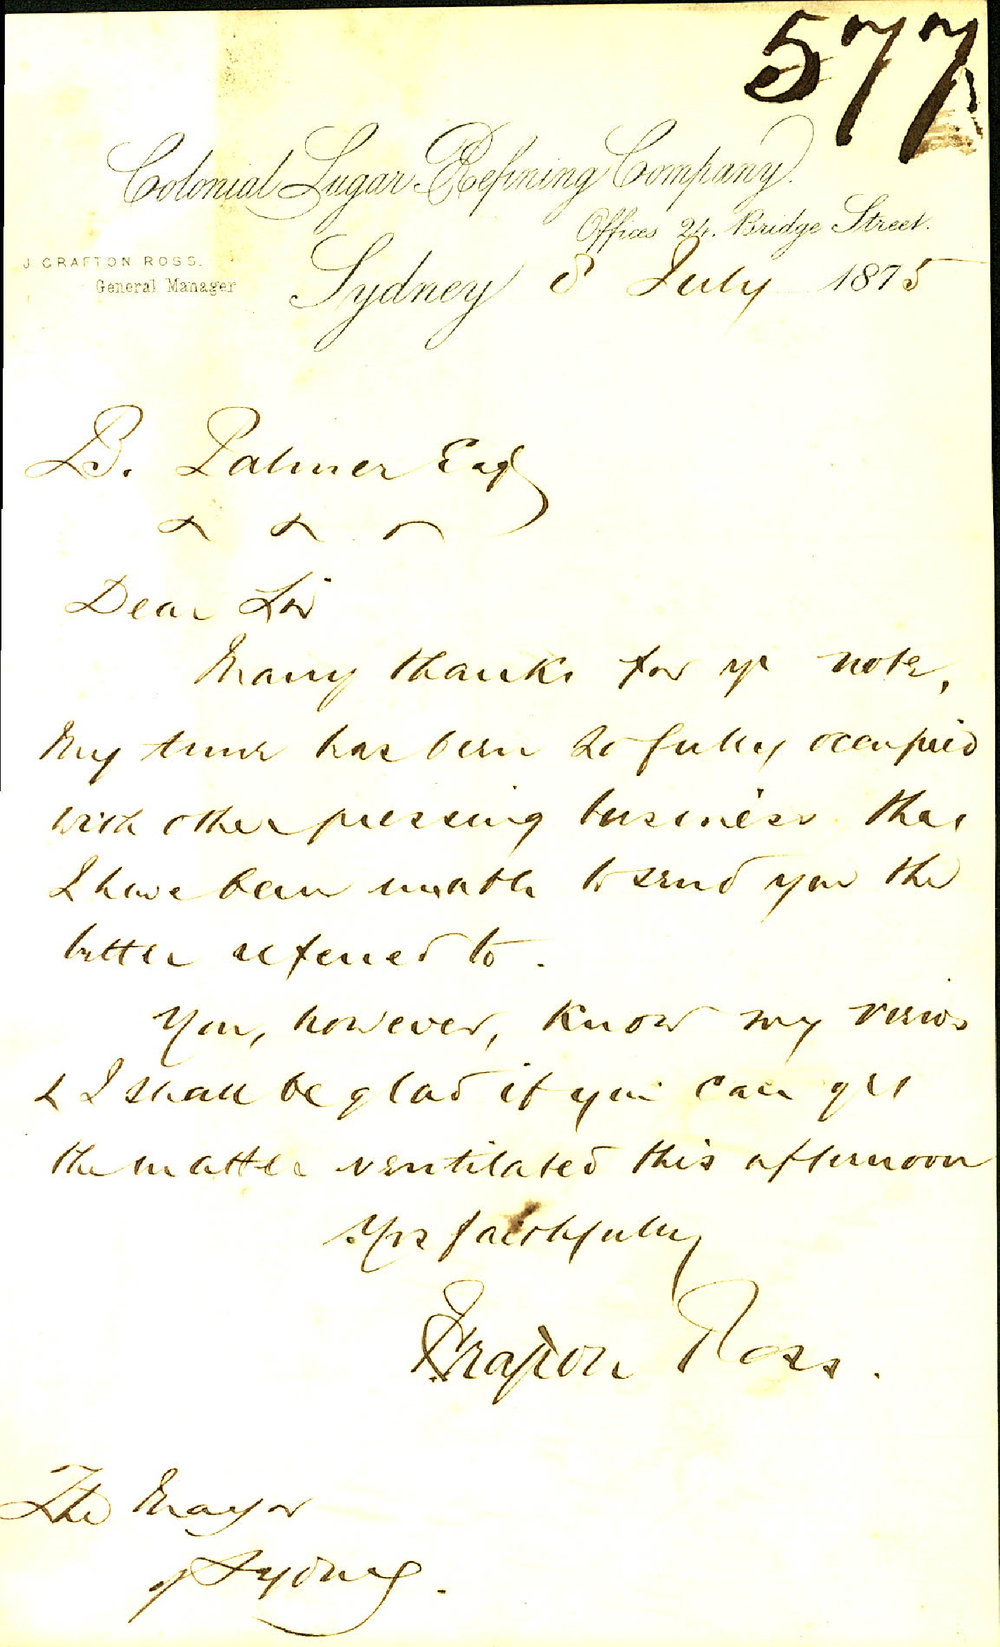 577
Colonial Sugar Refining Company.
Offices 24. Bridge Street.
J GRAFTON ROSS.
General Manager
Sydney 8 July 1875
B. Palmer Esq
Dear Sir
Many thanks for yr note,
My time has been so fully occupied
with other pressing business that
I have been unable to send you the
letter referred to.
You, however, know my views
& I shall be glad if you can get
the matter ventilated this afternoon
Yrs faithfully
J Grafton Ross.
The Mayor
of Sydney.